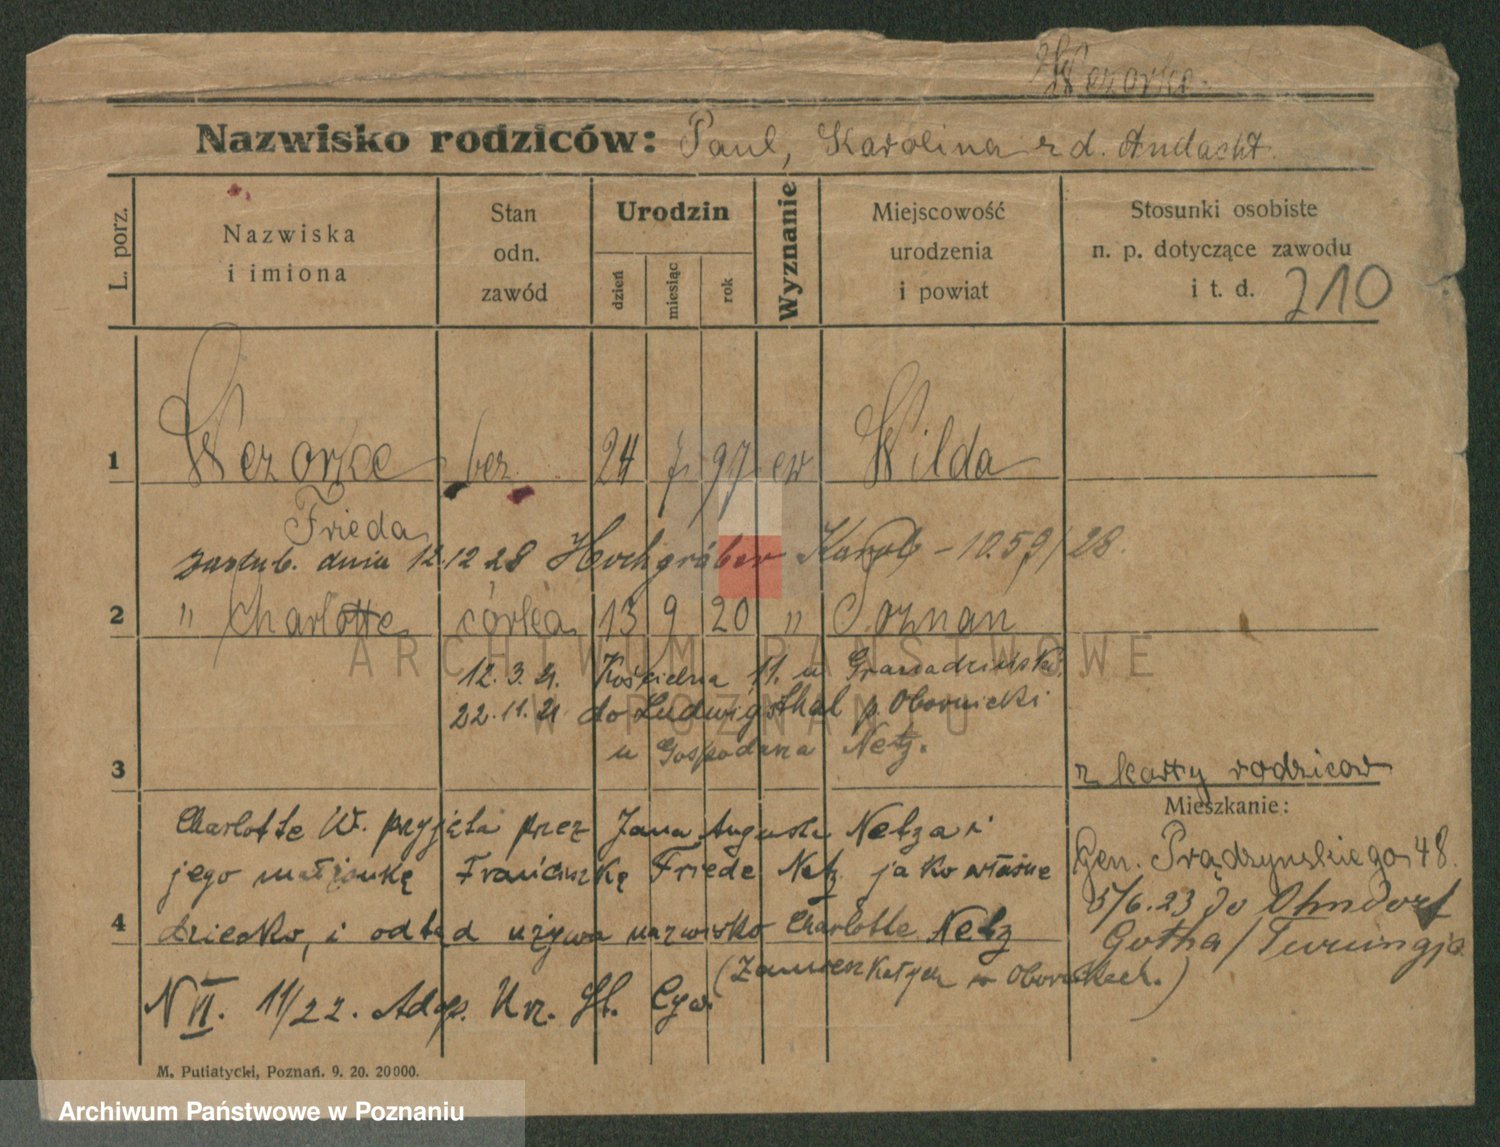 Wezorke
Nazwisko rodziców: Paul, Karolina z d. Andacht.
L. porz.
Nazwiska
i imiona
Stan
odn.
zawód
Urodzin
dzień
miesiąc
rok
Wyznanie
Miejscowość
urodzenia
i powiat
Stosunki osobiste
n. p. dotyczące zawodu
i t. d.
210
1 Wezorke bez 24 7 97 ew Wilda
Frieda
zaślub. dnia 12.12 28 Hochgräber Karol - 1059/28.
2 " Charlotte córka 13 9 20 " Poznan
12.3.21. Kościelna 11. u
22.11.21 do Ludwigsthal p. Obornicki
u Gospodarza Netz.
3
z karty rodzicow
Mieszkanie:
Charlotte W. przyjęta przez Jana Augusta Netza i
jego małżonkę Franciszkę Friede Netz jako własne
4 dziecko, i odtąd używa nazwisko Charlotte Netz
(Zamieszkałych w Obornikach.)
N VI. 11/22. Adop. Urz. St. Cyw.
Gen. Prądzynskiego 48.
5/6.23 do Ohrdorf
Gotha / Turingja
M. Putiatycki, Poznań. 9. 20. 20000.
ARCHIWUM PAŃSTWOWE
W POZNANIU
Archiwum Państwowe w Poznaniu